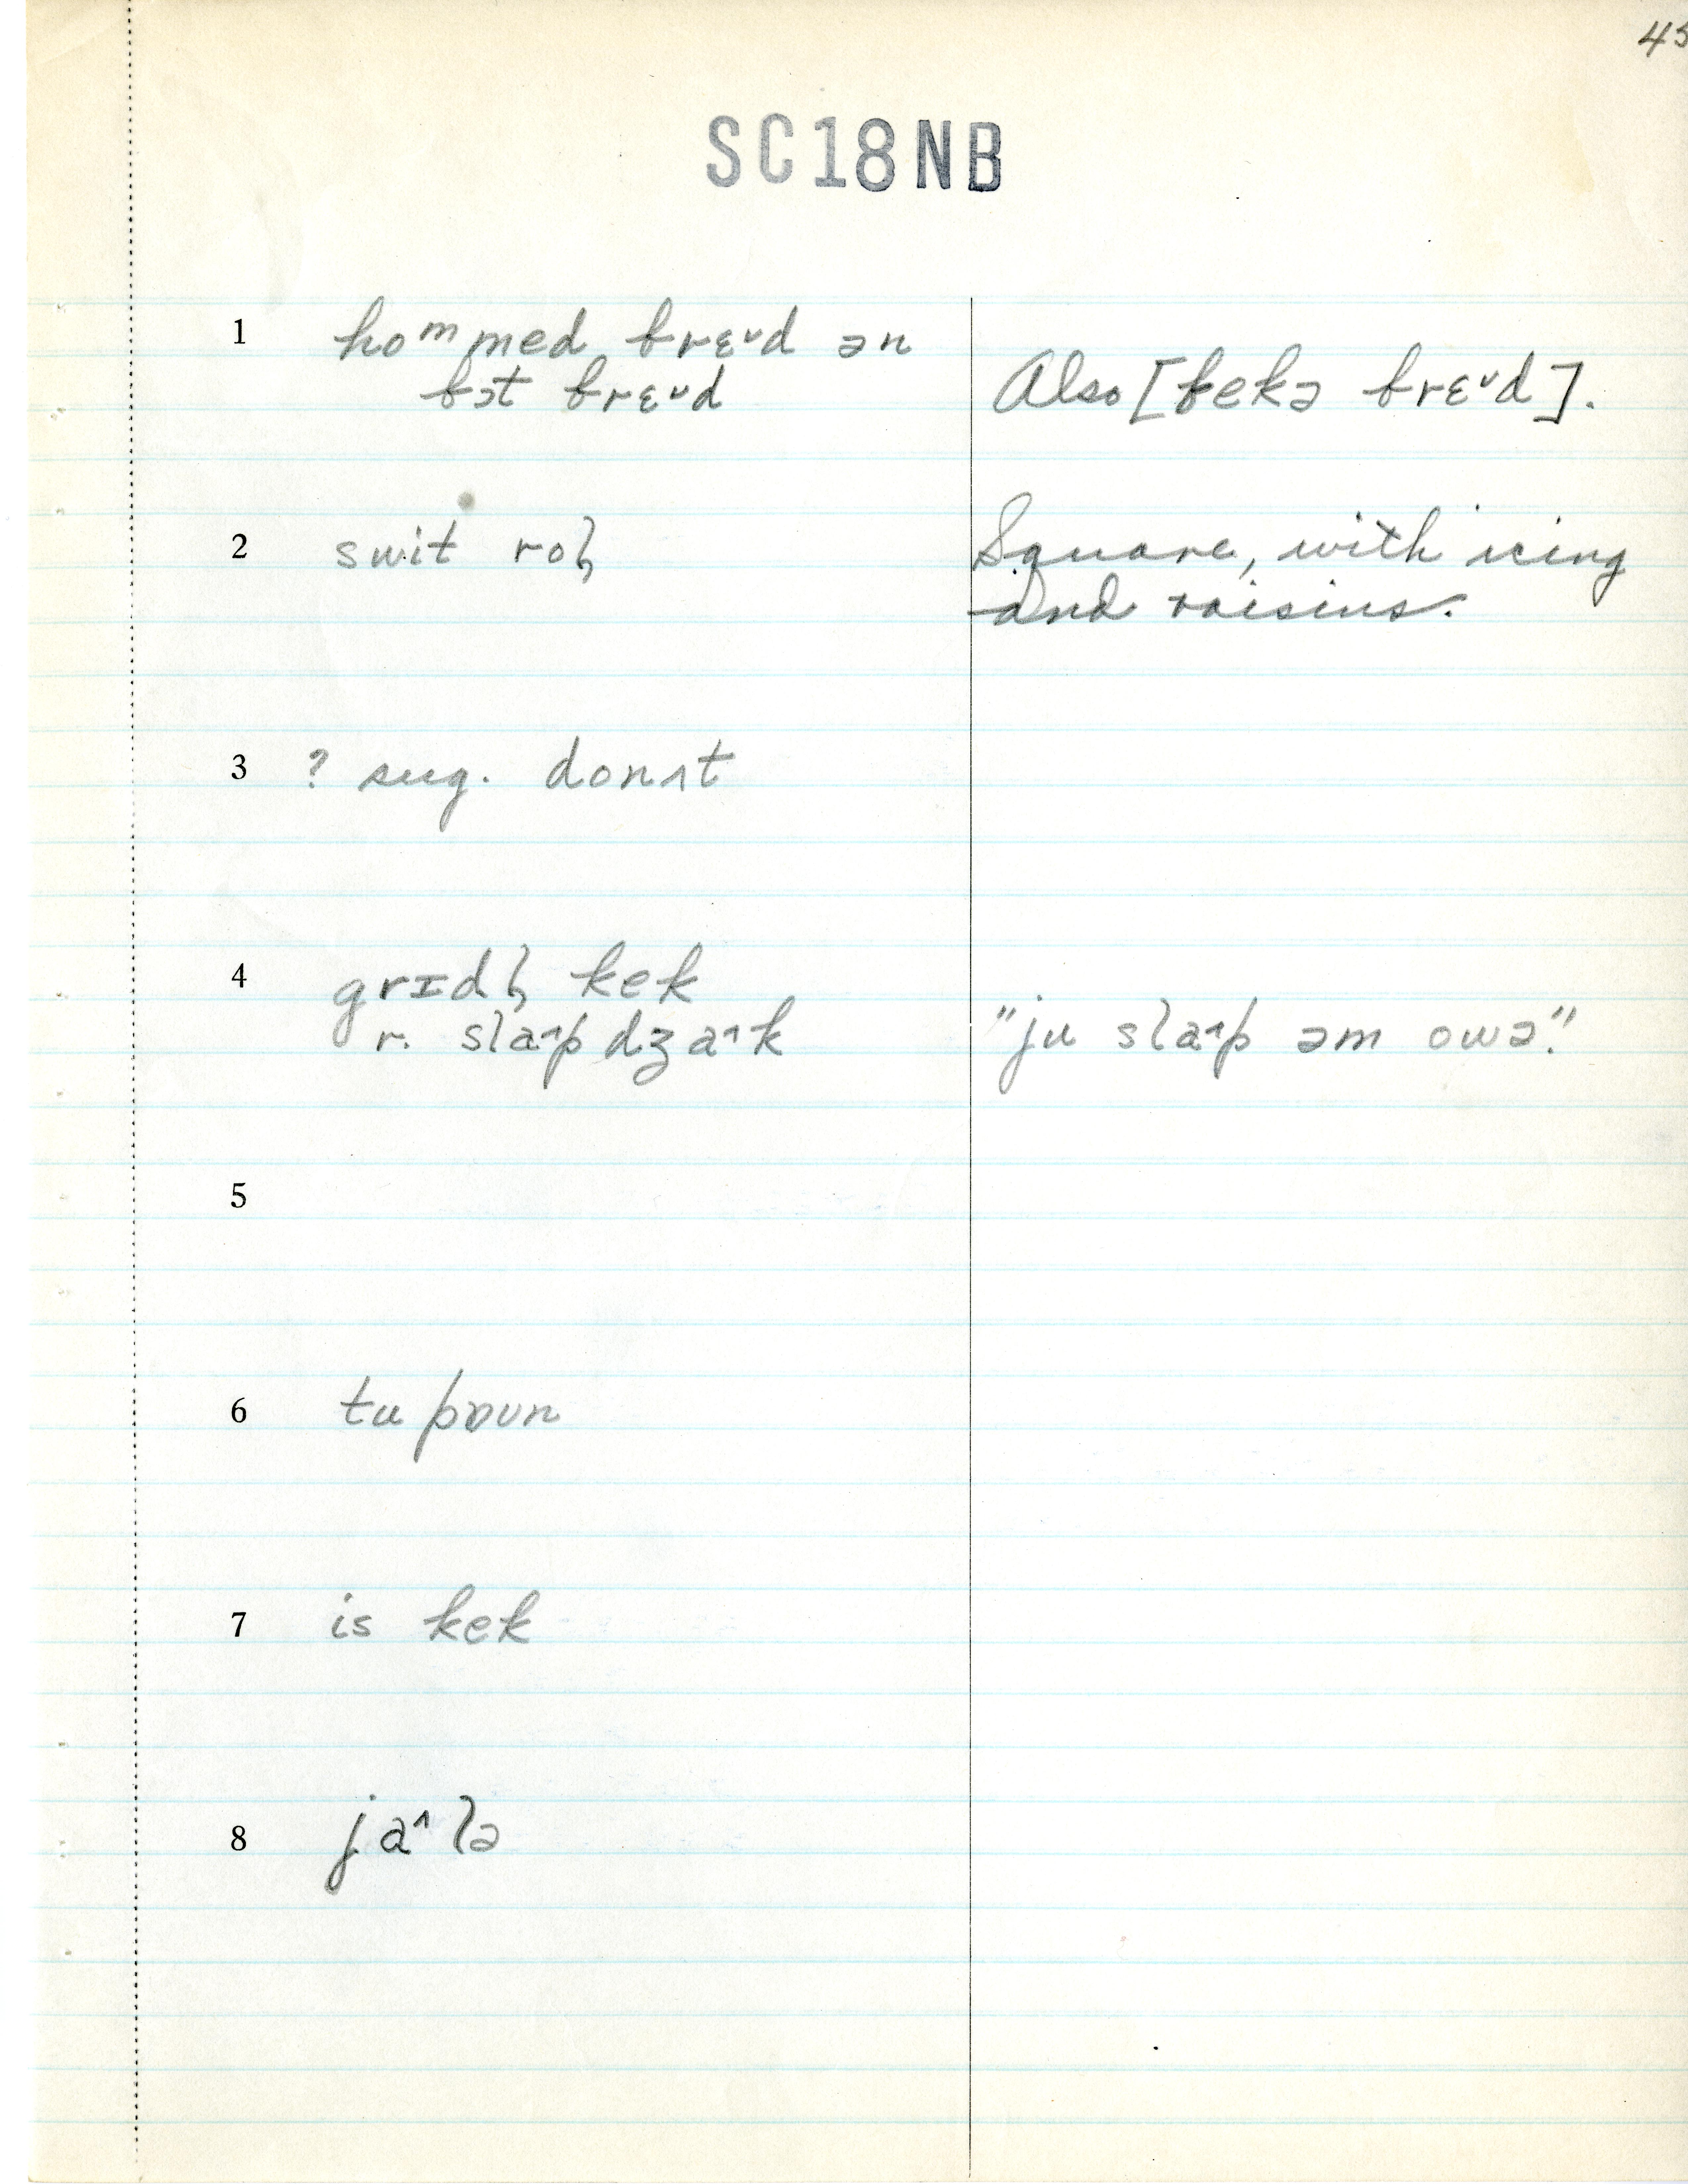 45
SC18NB
1 hoᵐmed brɛ˅d ən
bɔt brɛ˅d
Also [bekə brɛ˅d].
2 swit rol̩
Square, with icing
and raisins.
3 ? sug. donʌt
4 grɪdl̩ kek
r. sla˄p dʒa˄k
"ju sla˄p əm owə."
5
6 tu pɒun
7 is kek
8 ja˄lə